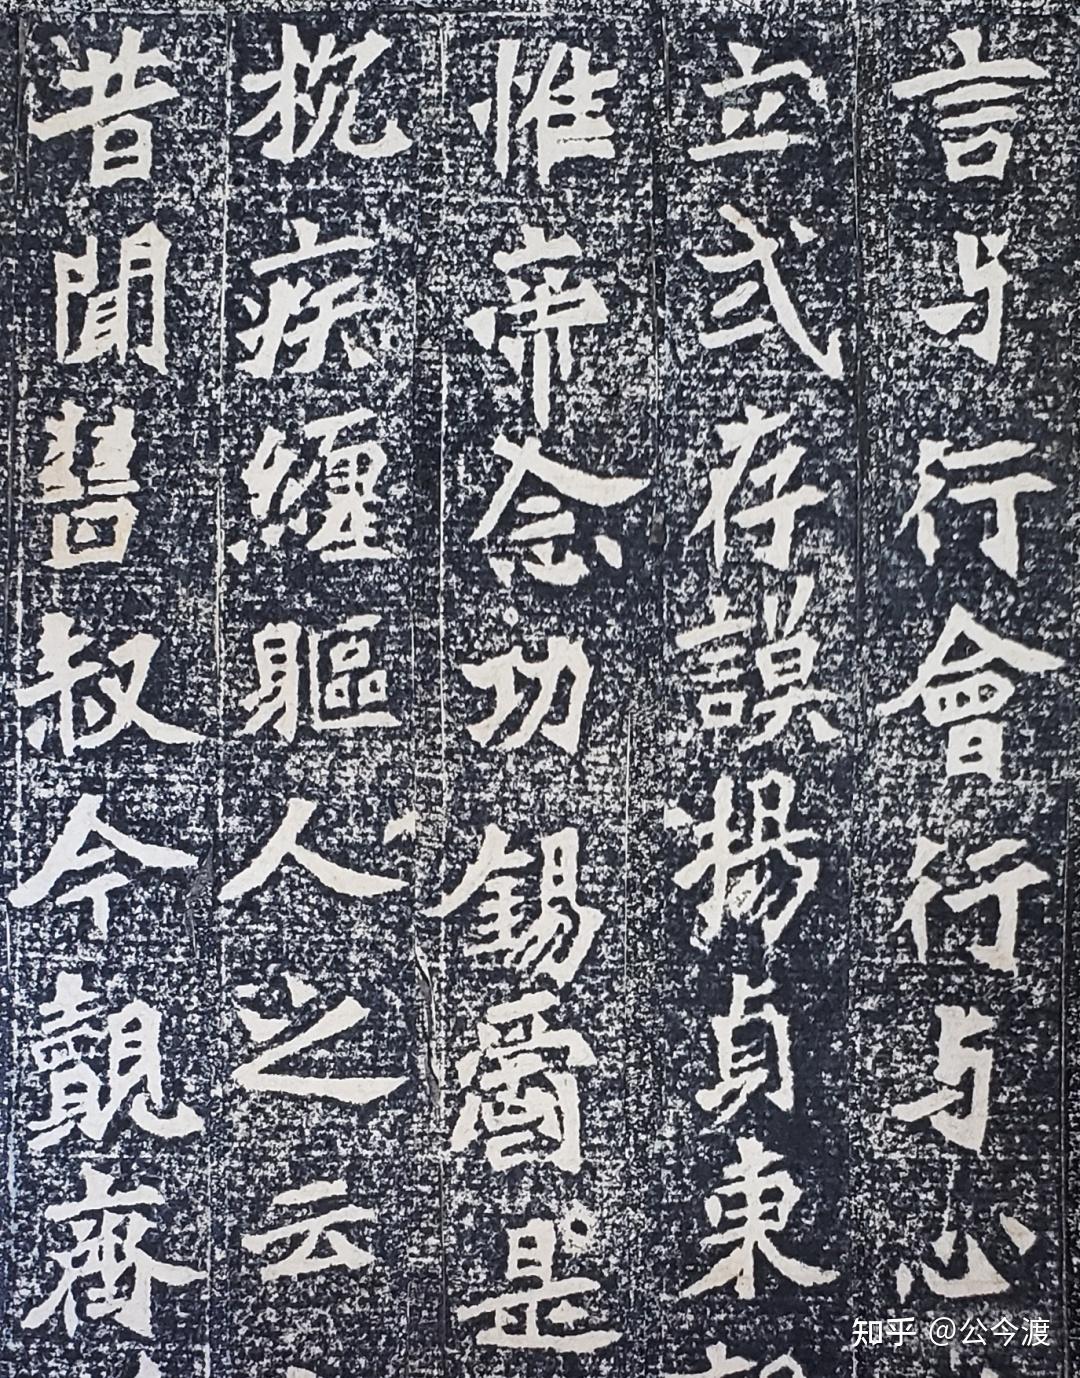 言与行會行与心
立式存謨揚貞東
惟帝念功錫爵是
枕疾纏軀人之云
昔聞叔今齊
知乎 @公今渡